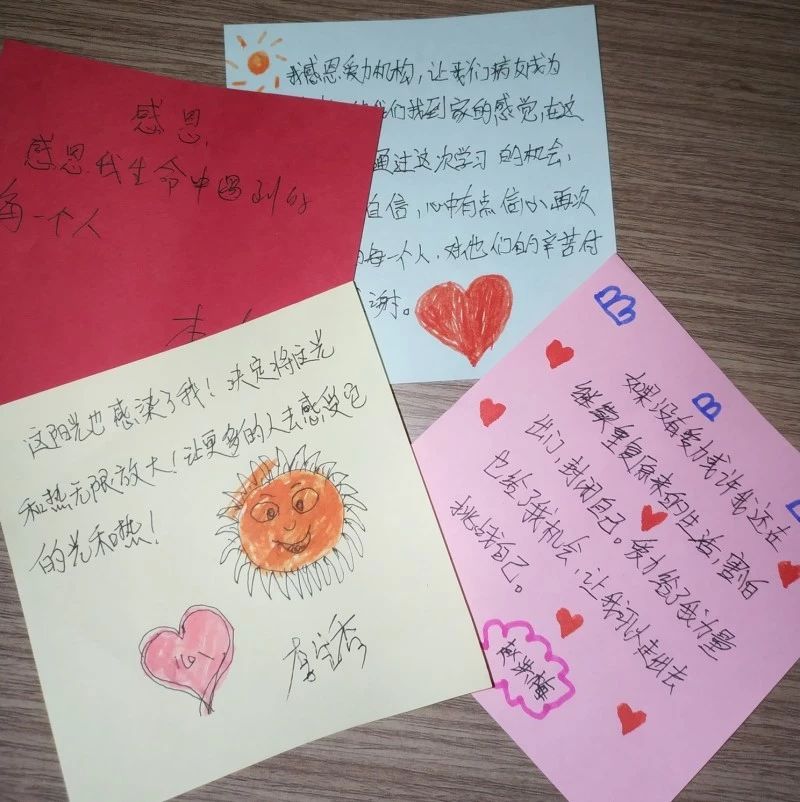 感恩,
感恩我生命中遇到的
每一个人
我感恩爱力机构,让我们病友成为
们找到家的感觉,在这
通过这次学习的机会,
自信,心中有点信心再次
的每一个人,对他们的辛苦付
谢。
这阳光也感染了我!决定将这光
和热无限放大!让更多的人去感受它
的光和热!
心
李宝香
B
B
如果没有爱力或许我还在
继续重复原来的生活,害怕
出门,封闭自己。爱力给了我力量
也给了我机会,让我可以走出去
挑战自己。